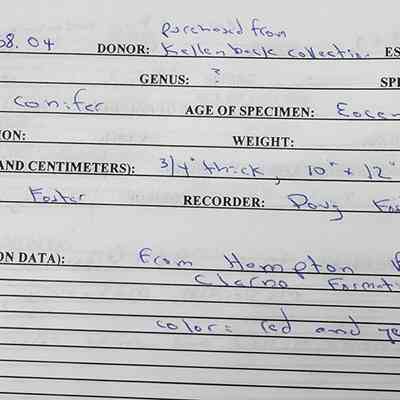 purchased from
08.04 DONOR: Kellenbeck collection ES
GENUS: ? SPE
conifer AGE OF SPECIMEN: Eocen
ION: WEIGHT:
AND CENTIMETERS): 3/4" thick, 10" x 12"
Foster RECORDER: Doug Fos
ON DATA): From Hampton B
Clarno Formati
color = red and ye